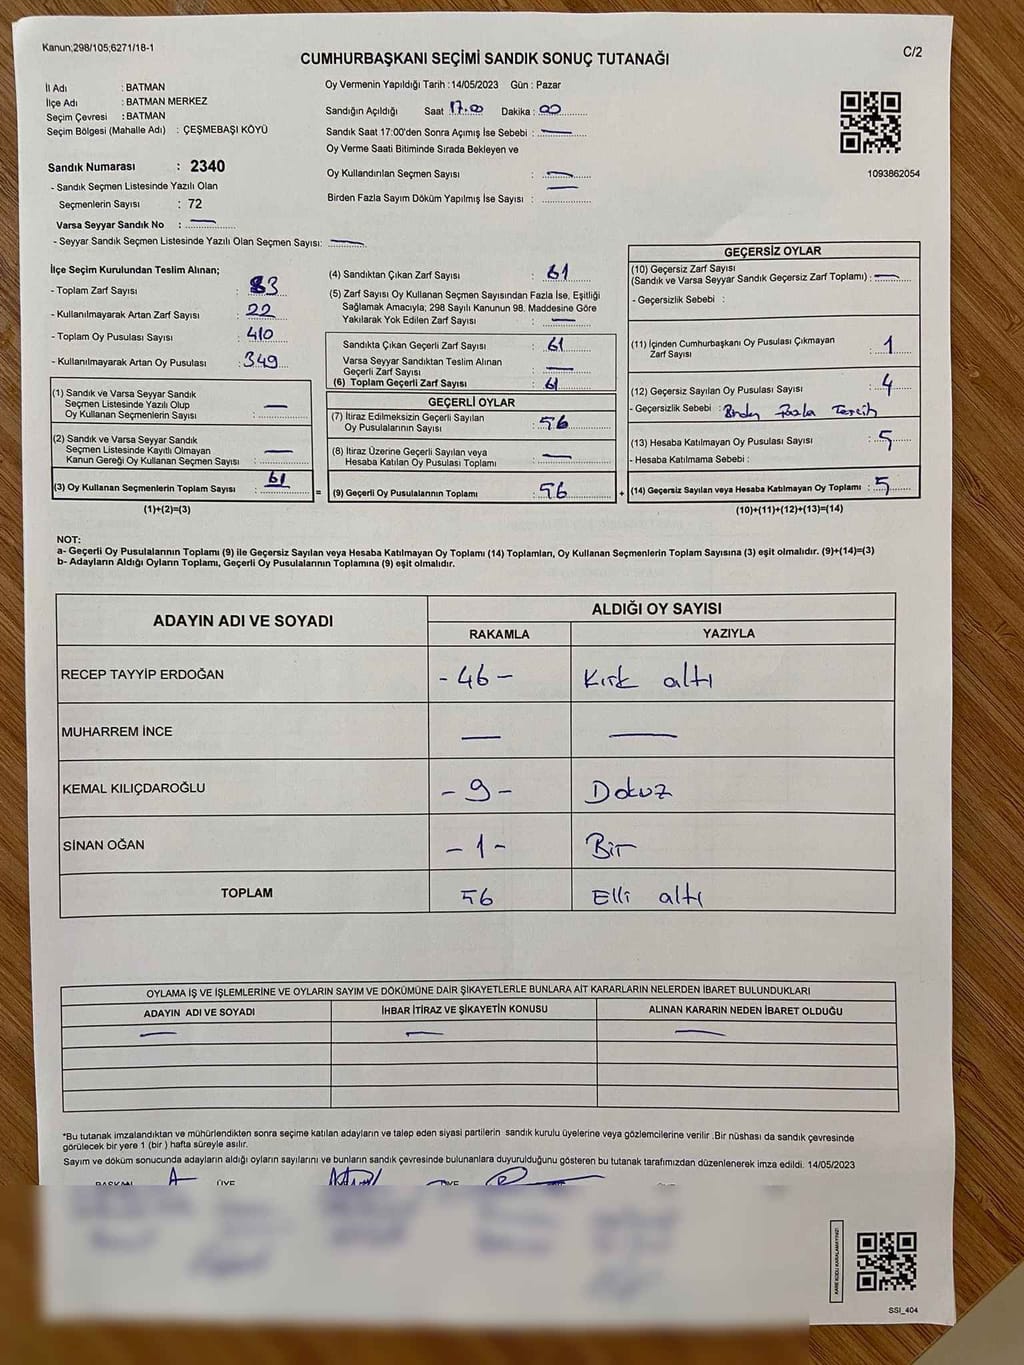 Kanun;298/105;6271/18-1
C/2
CUMHURBAŞKANI SEÇİMİ SANDIK SONUÇ TUTANAĞI
İl Adı : BATMAN
İlçe Adı : BATMAN MERKEZ
Seçim Çevresi : BATMAN
Seçim Bölgesi (Mahalle Adı) : ÇEŞMEBAŞI KÖYÜ
Sandık Numarası : 2340
- Sandık Seçmen Listesinde Yazılı Olan
Seçmenlerin Sayısı : 72
Varsa Seyyar Sandık No : —
- Seyyar Sandık Seçmen Listesinde Yazılı Olan Seçmen Sayısı: —
Oy Vermenin Yapıldığı Tarih : 14/05/2023 Gün : Pazar
Sandığın Açıldığı Saat 17.00 Dakika : 00
Sandık Saat 17:00'den Sonra Açımış İse Sebebi : —
Oy Verme Saati Bitiminde Sırada Bekleyen ve
Oy Kullandırılan Seçmen Sayısı : —
Birden Fazla Sayım Döküm Yapılmış İse Sayısı : —
1093862054
İlçe Seçim Kurulundan Teslim Alınan;
- Toplam Zarf Sayısı : 83
- Kullanılmayarak Artan Zarf Sayısı : 22
- Toplam Oy Pusulası Sayısı : 410
- Kullanılmayarak Artan Oy Pusulası : 349
(1) Sandık ve Varsa Seyyar Sandık
Seçmen Listesinde Yazılı Olup
Oy Kullanan Seçmenlerin Sayısı : —
(2) Sandık ve Varsa Seyyar Sandık
Seçmen Listesinde Kayıtlı Olmayan
Kanun Gereği Oy Kullanan Seçmen Sayısı : —
(3) Oy Kullanan Seçmenlerin Toplam Sayısı : 61
(1)+(2)=(3)
(4) Sandıktan Çıkan Zarf Sayısı : 61
(5) Zarf Sayısı Oy Kullanan Seçmen Sayısından Fazla İse, Eşitliği
Sağlamak Amacıyla; 298 Sayılı Kanunun 98. Maddesine Göre
Yakılarak Yok Edilen Zarf Sayısı : —
Sandıkta Çıkan Geçerli Zarf Sayısı : 61
Varsa Seyyar Sandıktan Teslim Alınan
Geçerli Zarf Sayısı : —
(6) Toplam Geçerli Zarf Sayısı : 61
GEÇERLİ OYLAR
(7) İtiraz Edilmeksizin Geçerli Sayılan
Oy Pusulalarının Sayısı : 56
(8) İtiraz Üzerine Geçerli Sayılan veya
Hesaba Katılan Oy Pusulası Toplamı : —
= (9) Geçerli Oy Pusulalarının Toplamı : 56 +
GEÇERSİZ OYLAR
(10) Geçersiz Zarf Sayısı
(Sandık ve Varsa Seyyar Sandık Geçersiz Zarf Toplamı) : —
- Geçersizlik Sebebi :
(11) İçinden Cumhurbaşkanı Oy Pusulası Çıkmayan
Zarf Sayısı : 1
(12) Geçersiz Sayılan Oy Pusulası Sayısı : 4
- Geçersizlik Sebebi : Birden Fazla Tercih
(13) Hesaba Katılmayan Oy Pusulası Sayısı : 5
- Hesaba Katılmama Sebebi :
(14) Geçersiz Sayılan veya Hesaba Katılmayan Oy Toplamı : 5
(10)+(11)+(12)+(13)=(14)
NOT:
a- Geçerli Oy Pusulalarının Toplamı (9) ile Geçersiz Sayılan veya Hesaba Katılmayan Oy Toplamı (14) Toplamları, Oy Kullanan Seçmenlerin Toplam Sayısına (3) eşit olmalıdır. (9)+(14)=(3)
b- Adayların Aldığı Oyların Toplamı, Geçerli Oy Pusulalarının Toplamına (9) eşit olmalıdır.
ADAYIN ADI VE SOYADI
ALDIĞI OY SAYISI
RAKAMLA YAZIYLA
RECEP TAYYİP ERDOĞAN - 46 - Kırk altı
MUHARREM İNCE — —
KEMAL KILIÇDAROĞLU - 9 - Dokuz
SİNAN OĞAN - 1 - Bir
TOPLAM 56 Elli altı
OYLAMA İŞ VE İŞLEMLERİNE VE OYLARIN SAYIM VE DÖKÜMÜNE DAİR ŞİKAYETLERLE BUNLARA AİT KARARLARIN NELERDEN İBARET BULUNDUKLARI
ADAYIN ADI VE SOYADI İHBAR İTİRAZ VE ŞİKAYETİN KONUSU ALINAN KARARIN NEDEN İBARET OLDUĞU
— — —
*Bu tutanak imzalandıktan ve mühürlendikten sonra seçime katılan adayların ve talep eden siyasi partilerin sandık kurulu üyelerine veya gözlemcilerine verilir .Bir nüshası da sandık çevresinde
görülecek bir yere 1 (bir ) hafta süreyle asılır.
Sayım ve döküm sonucunda adayların aldığı oyların sayılarını ve bunların sandık çevresinde bulunanlara duyurulduğunu gösteren bu tutanak tarafımızdan düzenlenerek imza edildi. 14/05/2023
BAŞKAN ÜYE ÜYE
KARE KODU KARALAMAYINIZ!
SSI_404